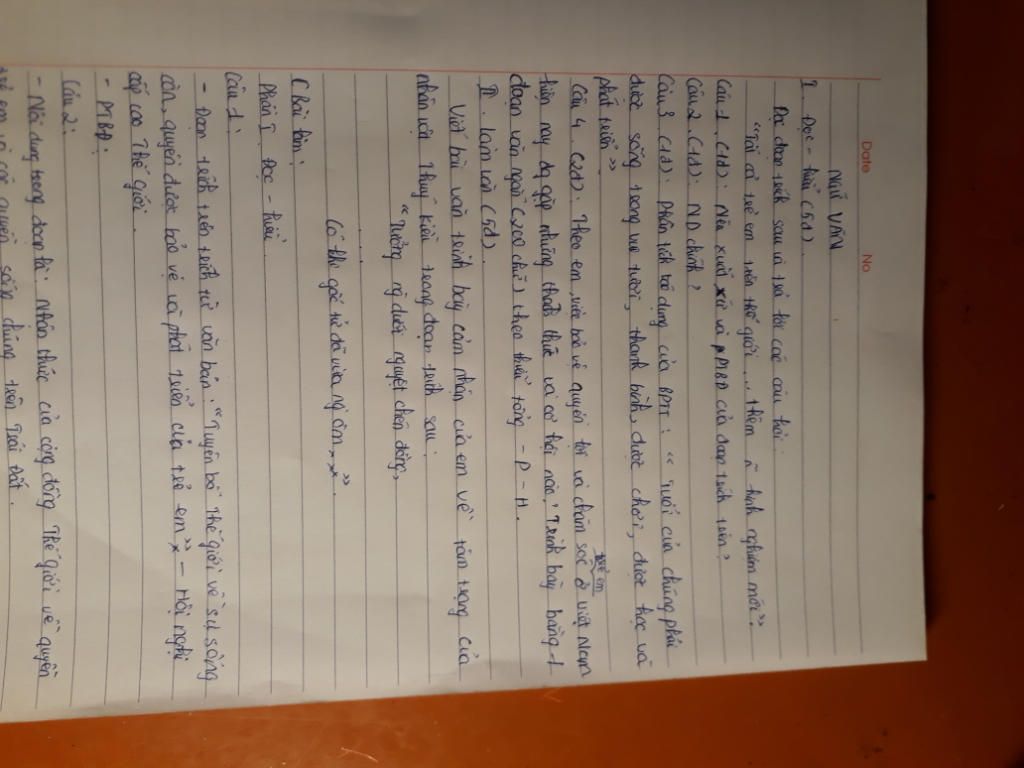 Date No
NGỮ VĂN
I. Đọc - hiểu (5đ).
Đọc đoạn trích sau và trả lời các câu hỏi:
"Tất cả trẻ em trên thế giới ... thêm ~ kinh nghiệm mới".
Câu 1. (1đ). Nêu xuất xứ và PTBĐ của đoạn trích trên?
Câu 2. (1đ). ND chính?
Câu 3. (1đ). Phân tích tác dụng của BPTT: "Tuổi của chúng phải
được sống trong vui tươi, thanh bình, được chơi, được học và
phát triển"
Câu 4. (2đ). Theo em, việc bảo vệ quyền lợi và chăm sóc trẻ em ở Việt Nam
hiện nay đã gặp những thách thức và cơ hội nào? Trình bày bằng 1
đoạn văn ngắn (200 chữ) theo kiểu tổng - P - H.
II. Làm văn (5đ).
Viết bài văn trình bày cảm nhận của em về tâm trạng của
nhân vật Thuý Kiều trong đoạn trích sau:
"Tưởng người dưới nguyệt chén đồng,
. . . .
Có khi gốc tử đã vừa người ôm".
Bài làm:
Phần I. Đọc - hiểu.
Câu 1:
- Đoạn trích trên trích từ văn bản: "Tuyên bố Thế giới về sự sống
còn, quyền được bảo vệ và phát triển của trẻ em" - Hội nghị
cấp cao Thế giới.
- PTBĐ:
Câu 2:
- Nội dung trong đoạn là: Nhận thức của cộng đồng Thế giới về quyền
trẻ em và các quyền sống đúng trên Trái Đất.